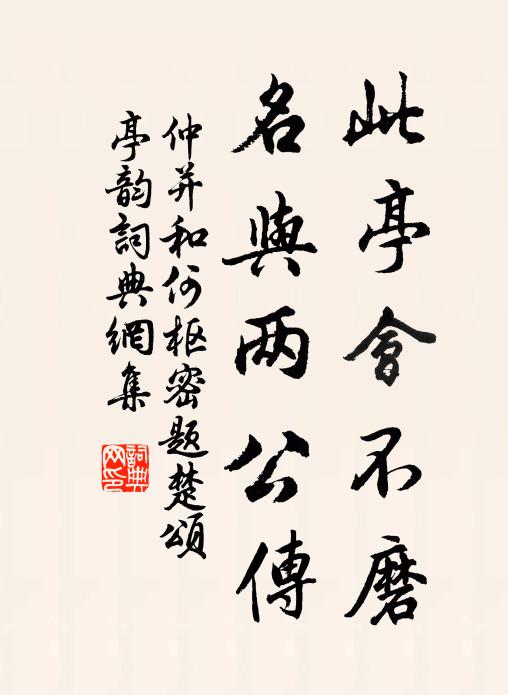 此亭會不磨
名與两公傳
仲并和何枢密题楚頌
亭韵詞典網集
詞典网印